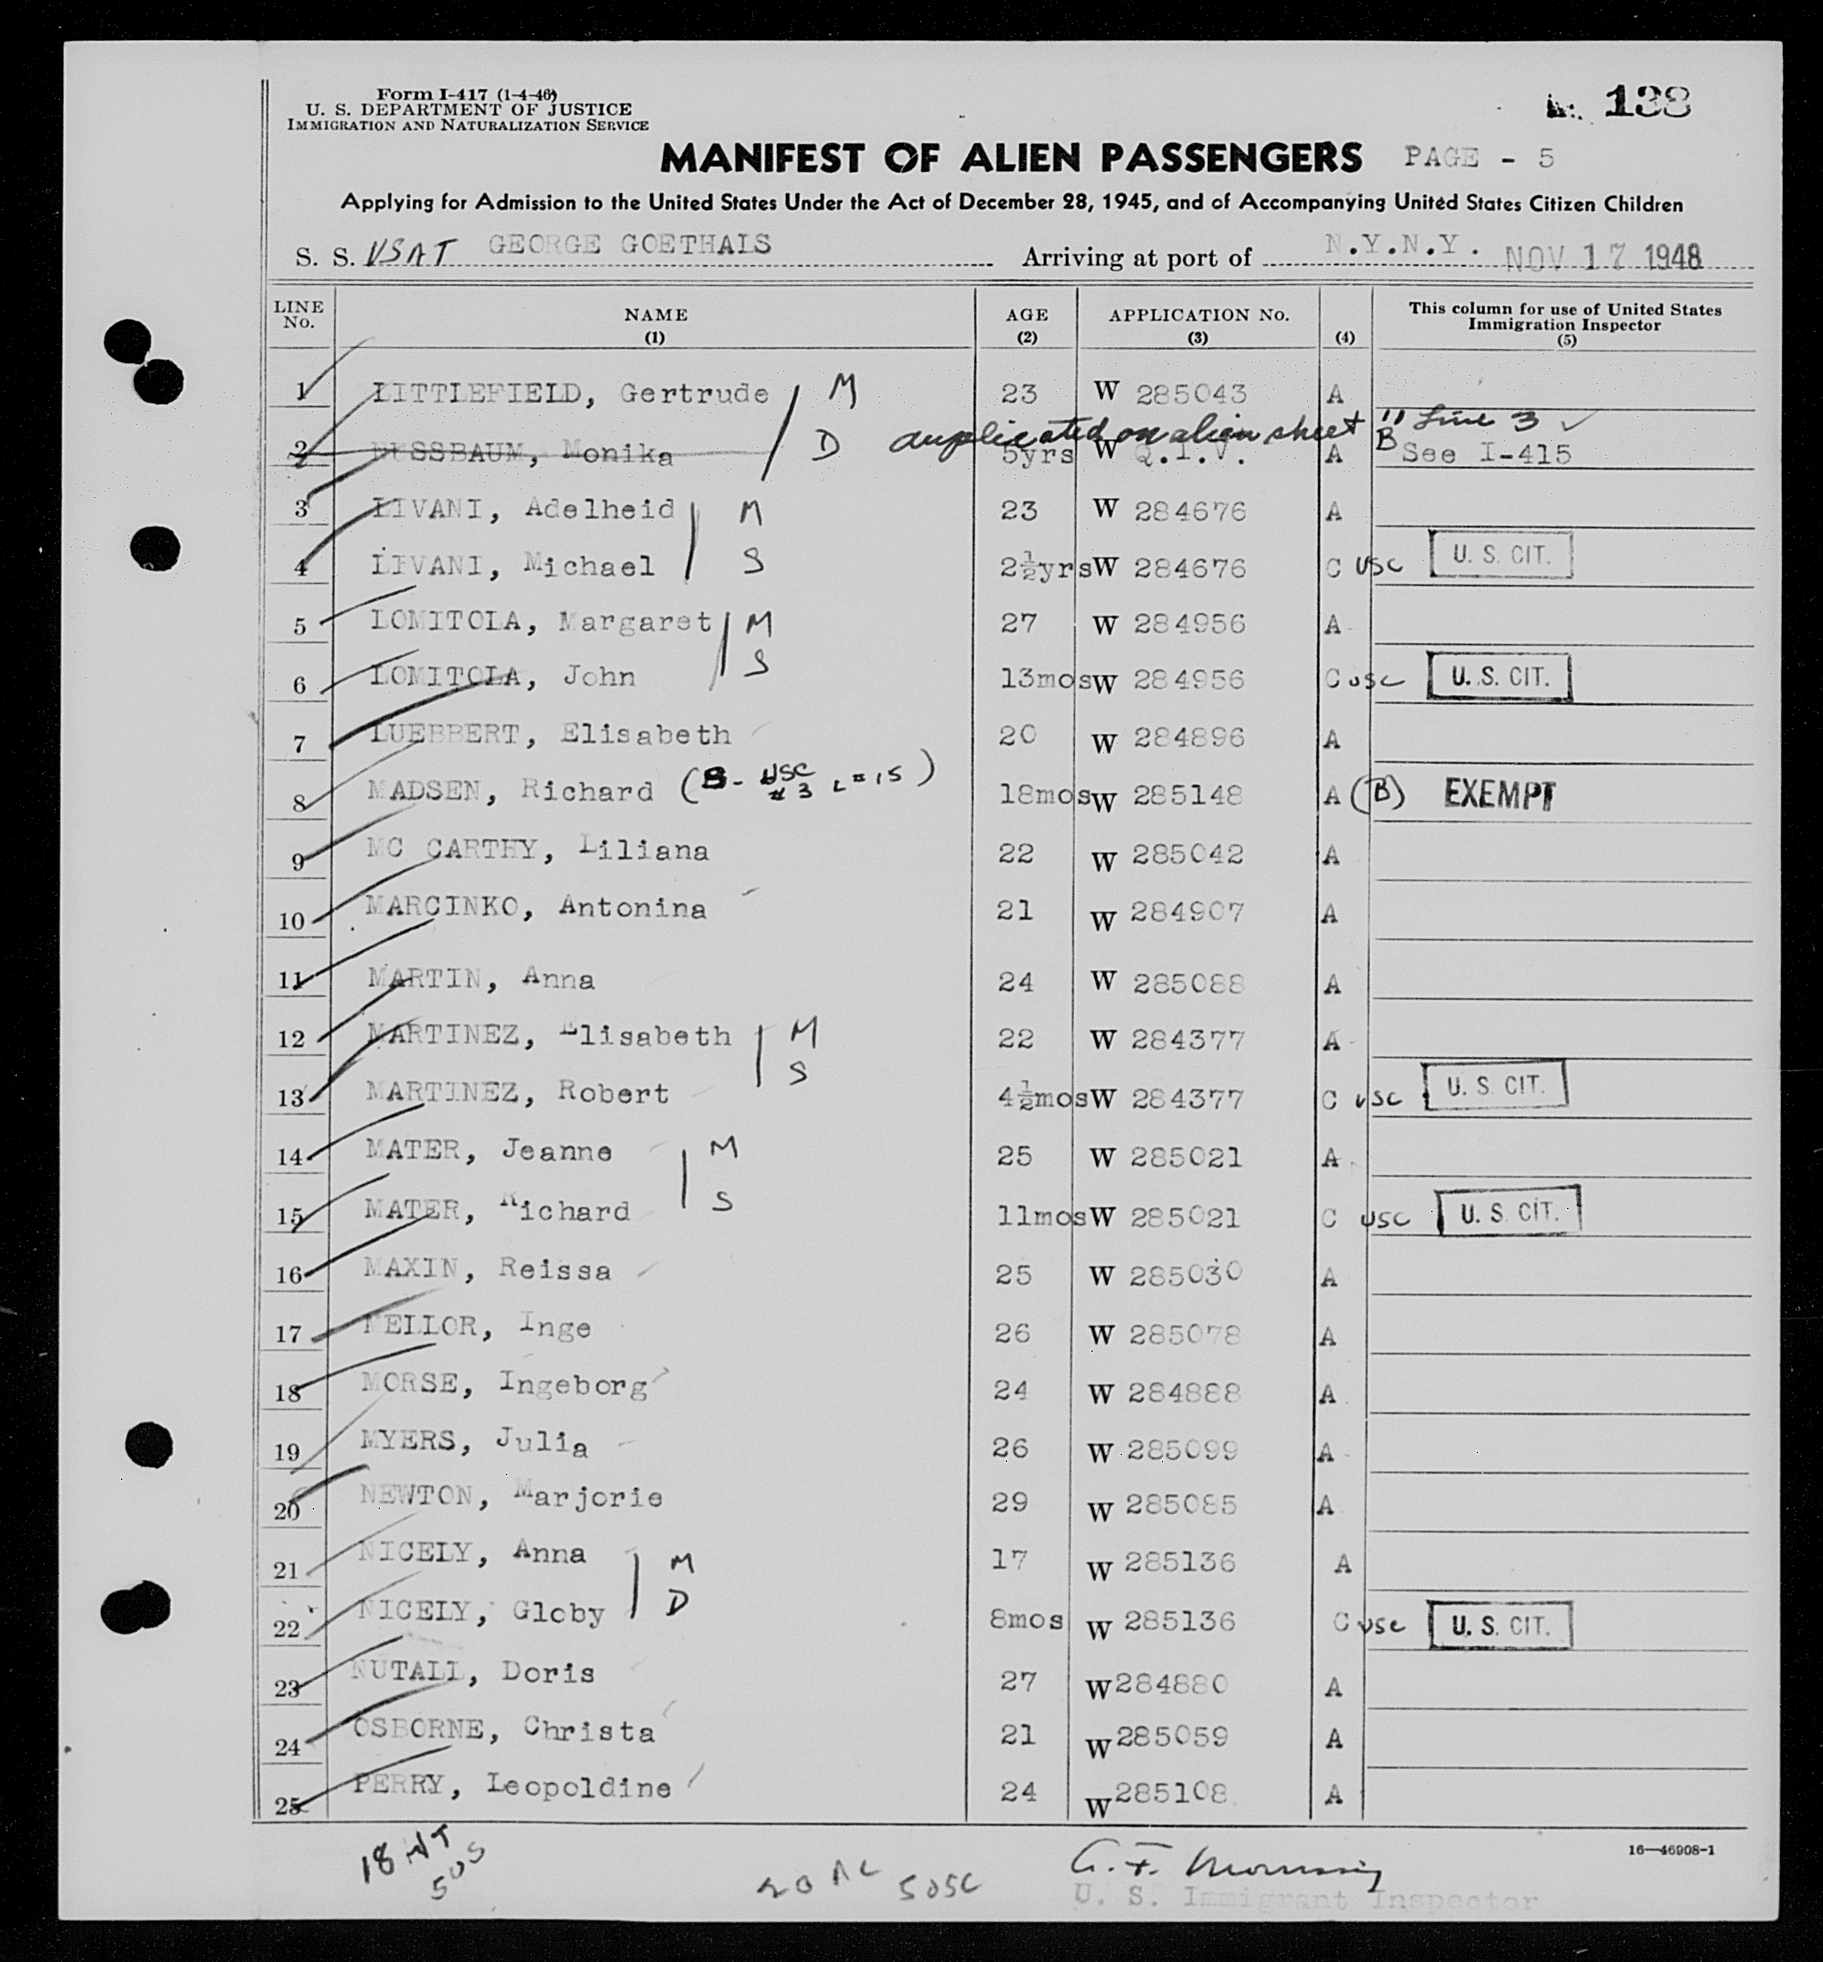 Form I-417 (1-4-46)
U. S. DEPARTMENT OF JUSTICE
IMMIGRATION AND NATURALIZATION SERVICE
138
MANIFEST OF ALIEN PASSENGERS PAGE - 5
Applying for Admission to the United States Under the Act of December 28, 1945, and of Accompanying United States Citizen Children
S. S. USAT GEORGE GOETHALS Arriving at port of N.Y.N.Y. NOV 17 1948
LINE No. NAME (1) AGE (2) APPLICATION No. (3) (4) This column for use of United States Immigration Inspector (5)
1 LITTLEFIELD, Gertrude M 23 W 285043 A
duplicated on alien sheet " Line 3
2 Monika D 5yrs W Q.I.V. A B See I-415
3 LIVANI, Adelheid M 23 W 284676 A
4 LIVANI, Michael S 2½yrs W 284676 C USC U. S. CIT.
5 LOMITOLA, Margaret M 27 W 284956 A
6 LOMITOLA, John S 13mos W 284956 C USC U. S. CIT.
7 LUEBBERT, Elisabeth 20 W 284896 A
8 MADSEN, Richard (B- USC #3 L=15) 18mos W 285148 A (B) EXEMPT
9 MC CARTHY, Liliana 22 W 285042 A
10 MARCINKO, Antonina 21 W 284907 A
11 MARTIN, Anna 24 W 285088 A
12 MARTINEZ, Elisabeth M 22 W 284377 A
13 MARTINEZ, Robert S 4½mos W 284377 C USC U. S. CIT.
14 MATER, Jeanne M 25 W 285021 A
15 MATER, Richard S 11mos W 285021 C USC U. S. CIT.
16 MAXIN, Reissa 25 W 285030 A
17 MELLOR, Inge 26 W 285078 A
18 MORSE, Ingeborg 24 W 284888 A
19 MYERS, Julia 26 W 285099 A
20 NEWTON, Marjorie 29 W 285085 A
21 NICELY, Anna M 17 W 285136 A
22 NICELY, Globy D 8mos W 285136 C USC U. S. CIT.
23 NUTALL, Doris 27 W 284880 A
24 OSBORNE, Christa 21 W 285059 A
25 PERRY, Leopoldine 24 W 285108 A
16—46908-1
18 NT
5 US
20 AL 5 USC
U. S. Immigrant Inspector